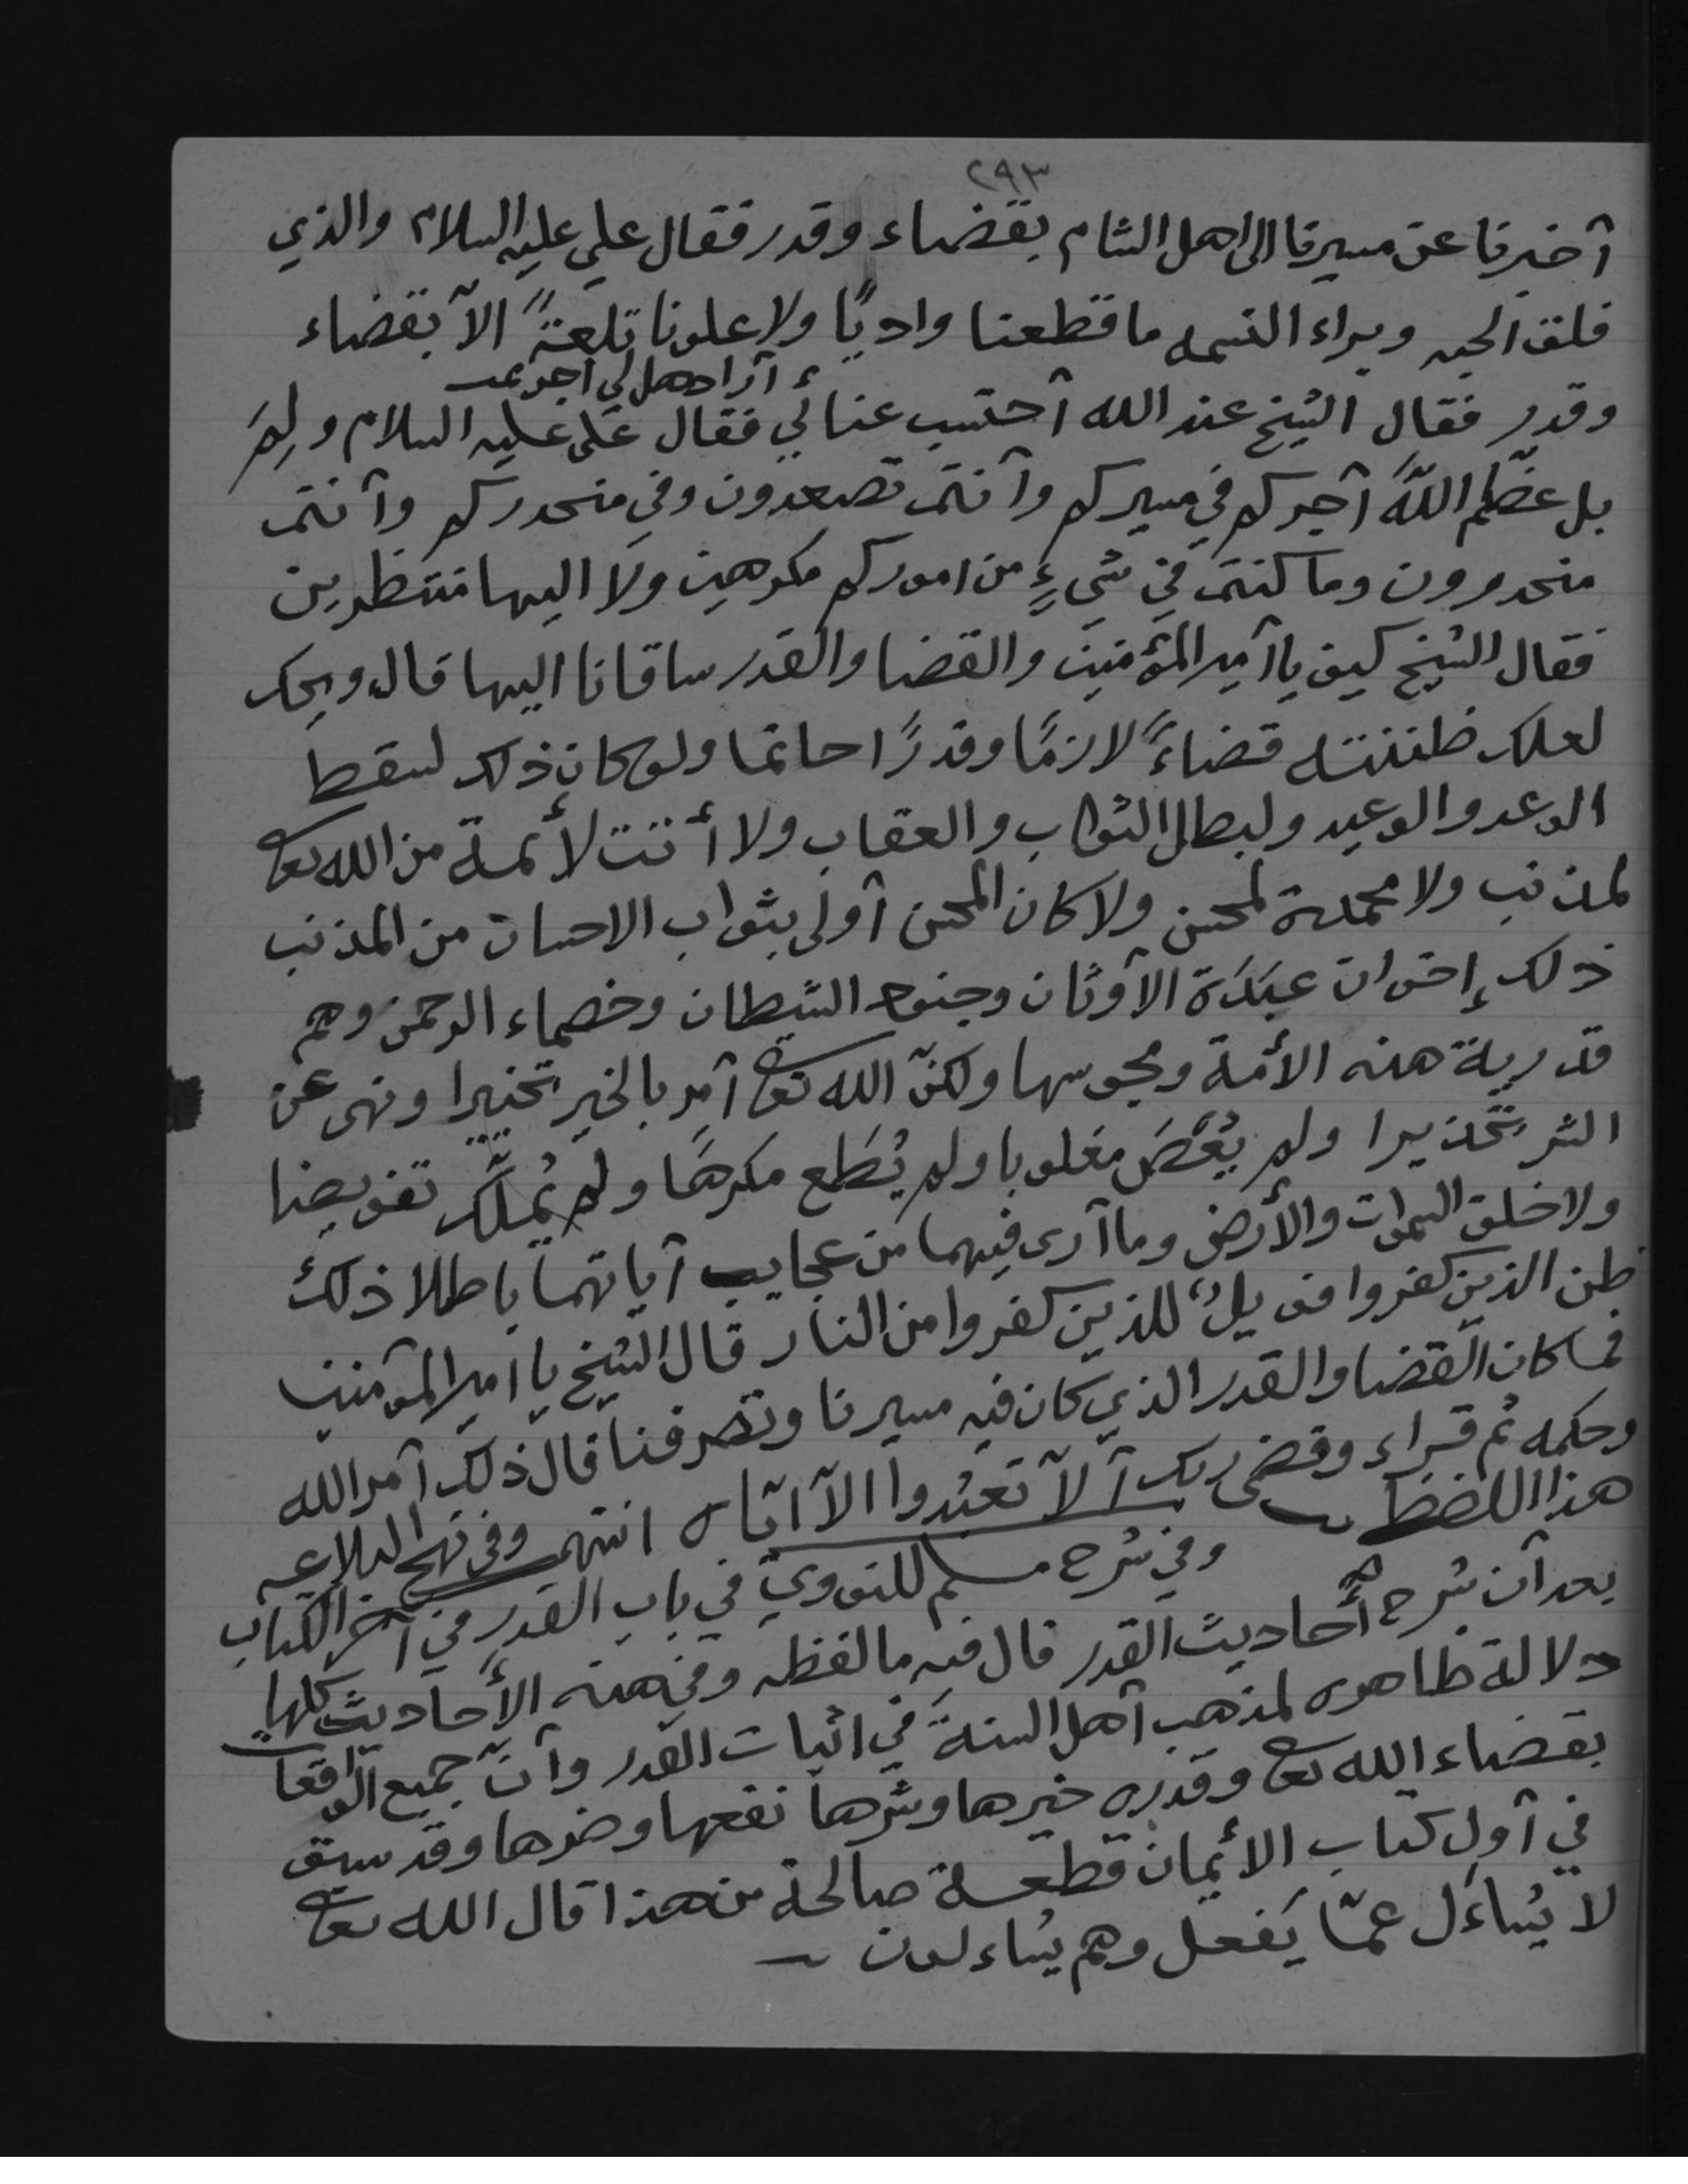 ٢٩٣
أخبرنا عن مسيرنا الى اهل الشام بقضاء وقدر فقال علي عليه السلام والذي
فلق الحبه وبراء النسمه ما قطعنا واديًا ولا علونا تلعةً الاّ بقضاء
أرادهل لي اجر
وقدر فقال الشيخ عند الله أحتسب عنائي فقال علي عليه السلام ولِمَ
بل عظّم اللهُ أجركم في مسيركم وأنتم تصعدون وفي منحدركم وأنتم
منحدرون وما كنتم في شيءٍ من اموركم مكرهين ولا اليها منتظرين
فقال الشيخ كيف يا أمير المؤمنين والقضا والقدر ساقانا اليها قال ويحك
لعلك ظننته قضاءً لازمًا وقدرًا حاتما ولو كان ذلك لسقط
الوعد والوعيد ولبطل الثواب والعقاب ولا أتت لأئمة من الله تعا
لمذنب ولا محمدة لمحسن ولا كان المحسن أولى بثواب الاحسان من المذنب
ذلك إخوان عبَدَة الأوثان وجنود الشيطان وخصماء الرحمن وهم
قدرية هذه الأمة ومجوسها ولكنّ الله تعا أمر بالخير تخييرا ونهى عن
الشر تحذيرا ولم يُعْصَ مغلوبا ولم يُطَع مكرهًا ولم يُملّك تفويضا
ولا خلق السموات والأرض وما أرى فيهما من عجايب آياتهما باطلا ذلك
ظن الذين كفروا فويلٌ للذين كفروا من النار قال الشيخ يا امير المؤمنين
فما كان القضا والقدر الذي كان فيه مسيرنا وتصرفنا قال ذلك أمر الله
وحكمه ثم قراء وقضى ربك ألاّ تعبُدوا الاّ ايّاه انتهى وفي نهج البلاغه
هذا اللفظ وفي شرح مسلم للنووي في باب القدر في آخر الكتاب
بعد أن شرح أحاديث القدر قال فيه ما لفظه وفي هذه الأحاديث كلها
دلالة ظاهره لمذهب أهل السنة في اثبات القدر وأنّ جميع الواقعات
بقضاء الله تعا وقدره خيرها وشرها نفعها وضرها وقد سبق
في أول كتاب الأيمان قطعة صالحة من هذا قال الله تعا
لا يُساءَل عمّا يَفعل وهم يُساءلون